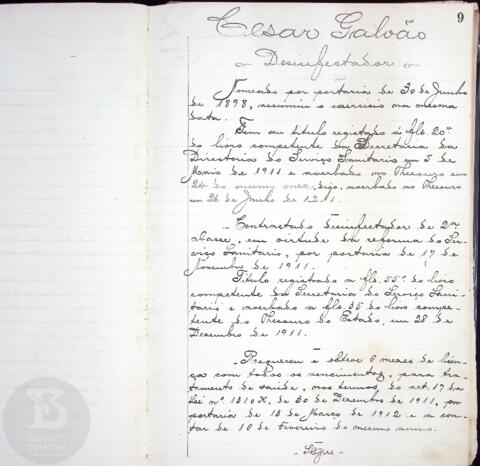 9
Cesar Galvão
Desinfectador
Nomeado por portaria de 30 de Junho
de 1898, assumiu o exercicio na mesma
data.
Tem seu titulo registrado á fls. 20v
do livro competente da Secretaria da
Directoria do Serviço Sanitario em 5 de
Maio de 1911 e averbado no Thesouro em
24 do mesmo mez, digo, averbado no Thesouro
em 26 de Junho de 1911.
- Contractado desinfectador de 2ª
classe, em virtude da reforma do Ser-
viço Sanitario, por portaria de 17 de
Novembro de 1911.
Titulo registrado a fls. 55v do livro
competente da Secretaria do Serviço Sani-
tario e averbado a fls. 35 do livro compe-
tente do Thesouro do Estado, em 28 de
Dezembro de 1911.
- Requereu e obteve 6 mezes de licen-
ça com todos os vencimentos, para tra-
tamento de saúde, nos termos do art. 17 da
Lei nº 1310 K, de 30 de Dezembro de 1911, por
portaria de 13 de Março de 1912 e a con-
tar de 10 de Fevereiro do mesmo anno.
- Segue -
INSTITUTO
BUTANTAN